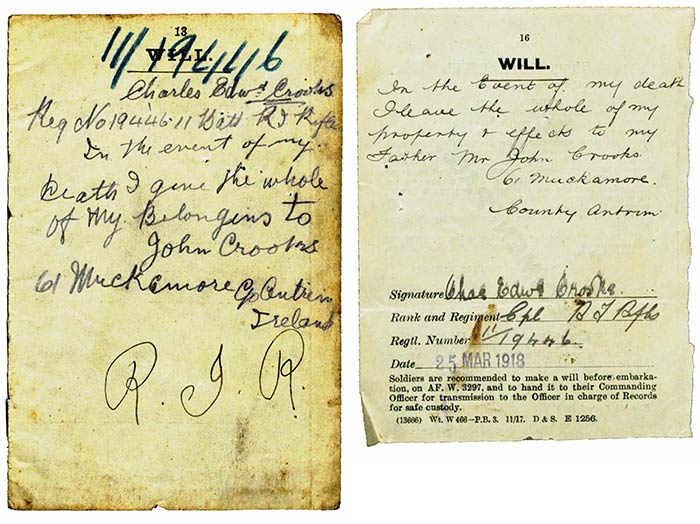 13
WILL.
11/19446
Charles Edwd Crooks
Reg No 19446 11 Batt R I Rifls
In the event of my
Death I give the whole
of My Belongins to
John Crooks
61 Muckamore Co Antrim
Ireland
R. I R.
16
WILL.
In the Event of my death
I leave the whole of my
property & effects to my
Father Mr John Crooks
61 Muckamore.
County Antrim
Signature Chas Edwd Crooks.
Rank and Regiment Cpl R I Rfls
Regtl. Number 11/19446.
Date 25 MAR 1918
Soldiers are recommended to make a will before embarka-
tion, on AF. W. 3297, and to hand it to their Commanding
Officer for transmission to the Officer in charge of Records
for safe custody.
(13666) Wt. W 466—P.B. 3. 11/17. D & S. E 1256.